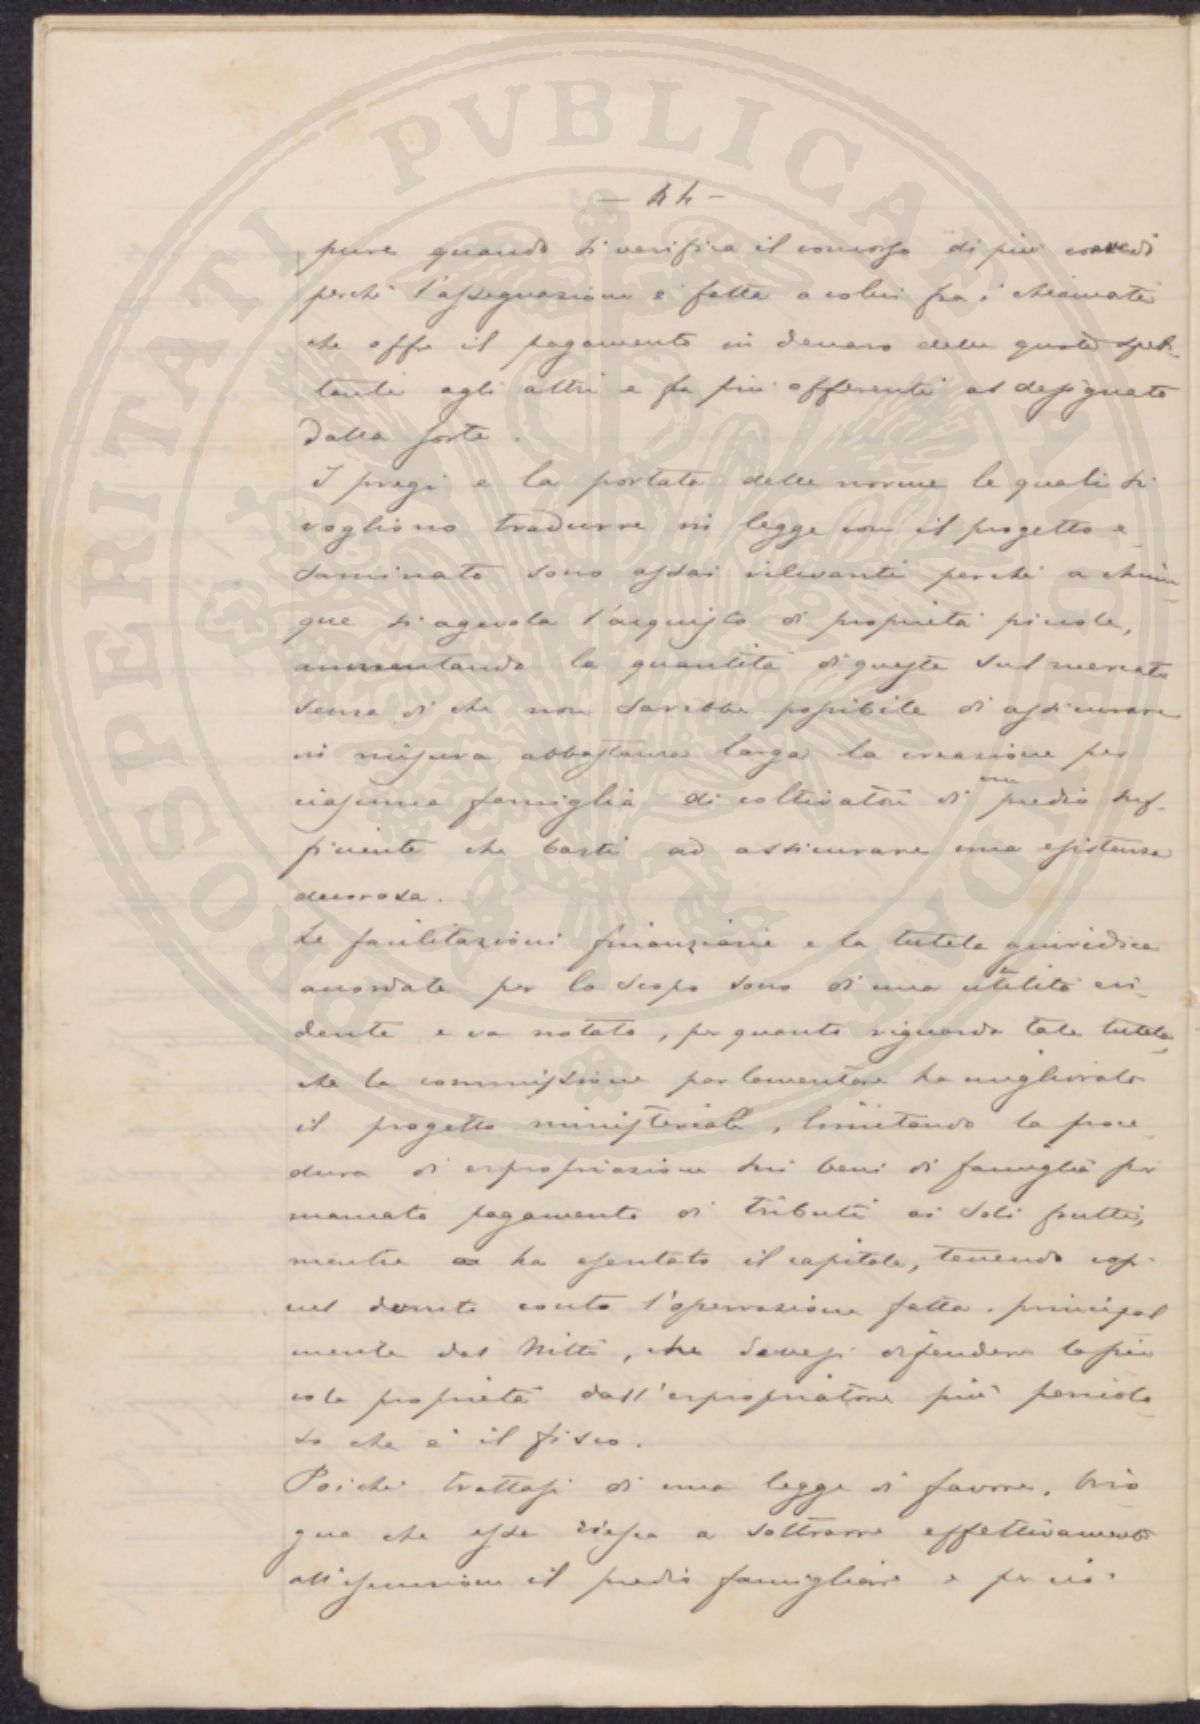 PROSPERITATI PVBLICAE AVGENDAE
— 44 —
pure quando si verifica il concorso di più eredi
perchè l'assegnazione è fatta a colui fra i chiamati
che offre il pagamento in denaro delle quote spet-
tanti agli altri e fra più offerenti al designato
dalla sorte.
I pregi e la portata delle norme le quali si
vogliono tradurre in legge con il progetto e-
saminato sono assai rilevanti perchè a chiun-
que si agevola l'acquisto di proprietà piccole,
aumentando la quantità di queste sul mercato
senza di che non sarebbe possibile di assicurare
in misura abbastanza larga la creazione per
ciascuna famiglia di coltivatori di un predio suf-
ficiente che basti ad assicurare una esistenza
decorosa.
Le facilitazioni finanziarie e la tutela giuridica
accordate per lo scopo sono di una utilità evi-
dente e va notato, per quanto riguarda tale tutela,
che la commissione parlamentare ha migliorato
il progetto ministeriale, limitando la proce-
dura di espropriazione sui beni di famiglia per
mancato pagamento di tributi ai soli frutti,
mentre ha esentato il capitale, tenendo così
nel dovuto conto l'osservazione fatta principal
mente dal Nitti, che devesi difendere la pic
cola proprietà dall'espropriatore più pericolo-
so che è il fisco.
Poichè trattasi di una legge di favore, biso
gna che essa riesca a sottrarre effettivamente
all'esecuzione il predio famigliare e per ciò